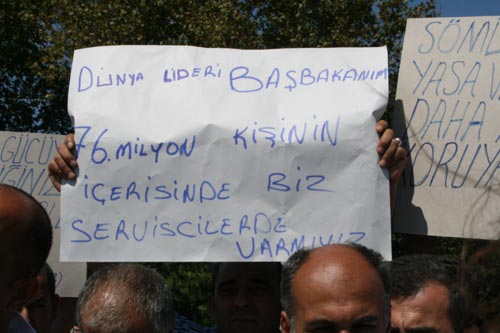 DÜNYA LİDERİ BAŞBAKANIM
76.MİLYON KİŞİNİN
İÇERİSİNDE BİZ
SERVİSCİLERDE
VARMIYIZ
GÜCÜ
SÖM
YASA
DAHA
KORUYA